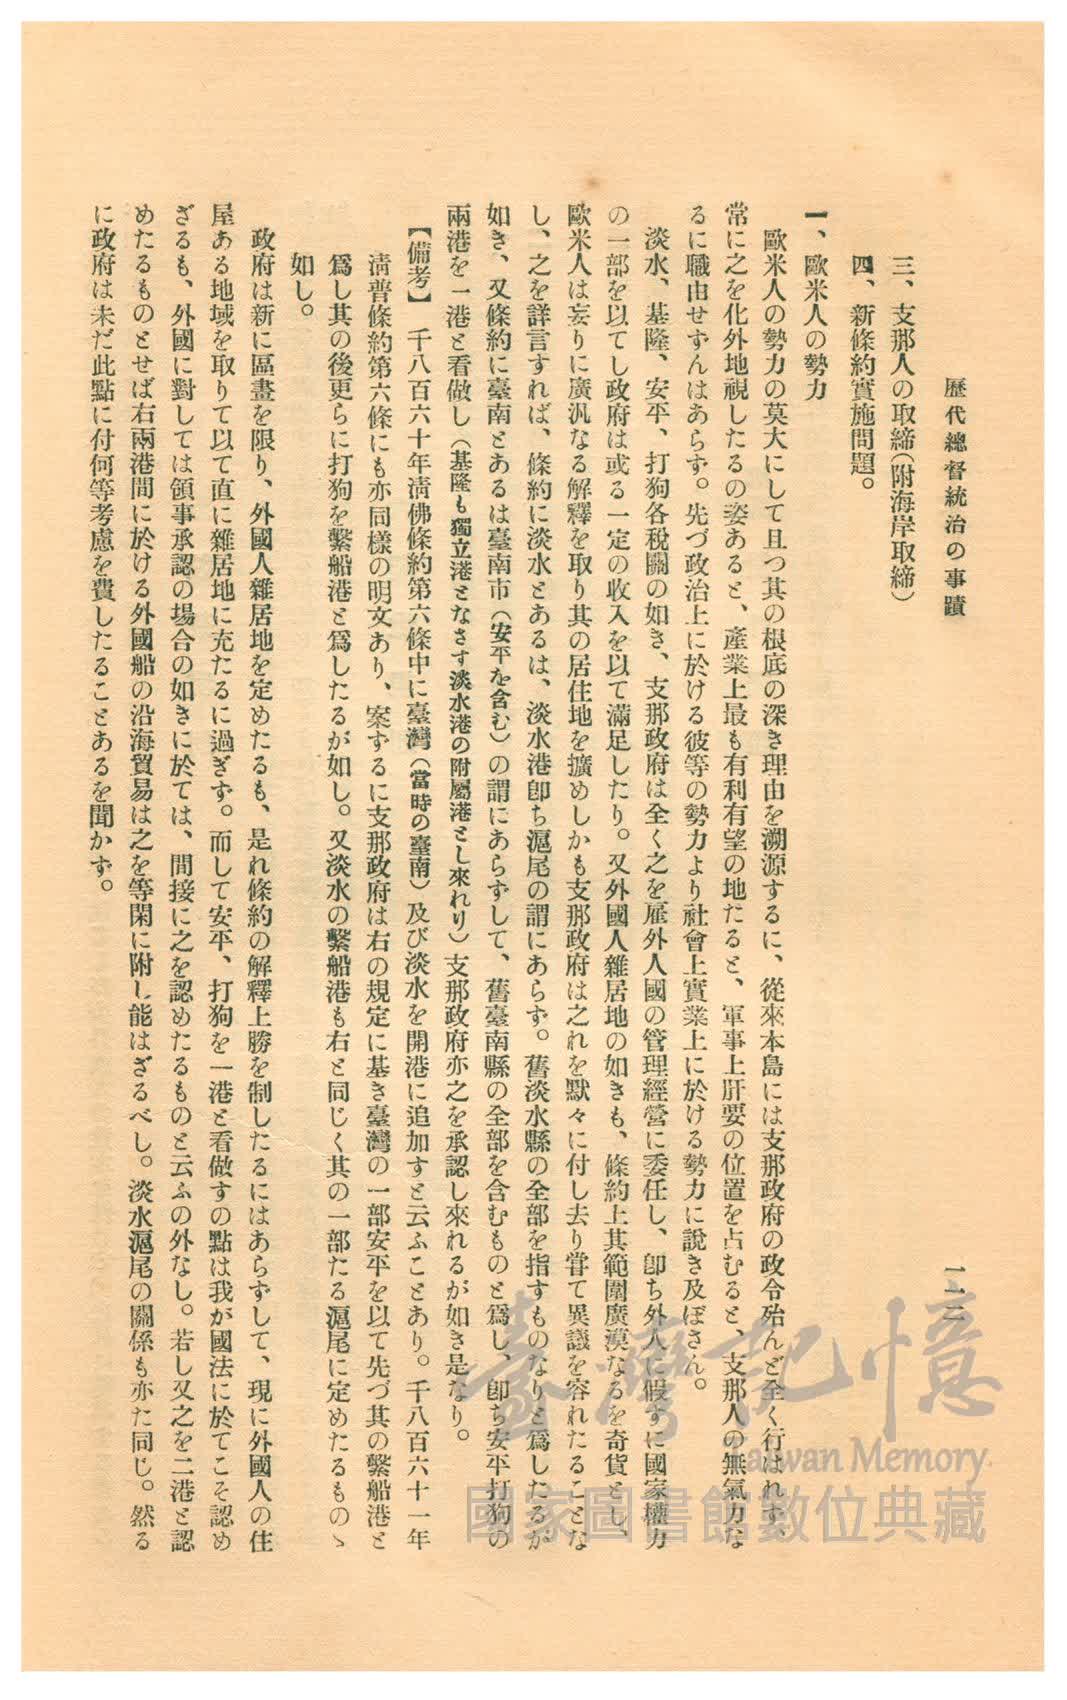 歷代總督統治の事蹟
一一二
三、支那人の取締(附海岸取締)
四、新條約實施問題。
一、歐米人の勢力
歐米人の勢力の莫大にして且つ其の根底の深き理由を溯源するに、從來本島には支那政府の政令殆んど全く行はれず、
常に之を化外地視したるの姿あると、產業上最も有利有望の地たると、軍事上肝要の位置を占むると、支那人の無氣力な
るに職由せずんはあらず。先づ政治上に於ける彼等の勢力より社會上實業上に於ける勢力に說き及ぼさん。
淡水、基隆、安平、打狗各稅關の如き、支那政府は全く之を雇外人國の管理經營に委任し、卽ち外人に假すに國家權力
の一部を以てし政府は或る一定の收入を以て滿足したり。又外國人雜居地の如きも、條約上其範圍廣漠なるを奇貨とし、
歐米人は妄りに廣汎なる解釋を取り其の居住地を擴めしかも支那政府は之れを默々に付し去り甞て異議を容れたることな
し、之を詳言すれば、條約に淡水とあるは、淡水港卽ち滬尾の謂にあらず。舊淡水縣の全部を指すものなりと爲したるが
如き、又條約に臺南とあるは臺南市(安平を含む)の謂にあらずして、舊臺南縣の全部を含むものと爲し、卽ち安平打狗の
兩港を一港と看做し(基隆も獨立港となさす淡水港の附屬港とし來れり)支那政府亦之を承認し來れるが如き是なり。
【備考】 千八百六十年淸佛條約第六條中に臺灣(當時の臺南)及び淡水を開港に追加すと云ふことあり。千八百六十一年
淸普條約第六條にも亦同樣の明文あり、案ずるに支那政府は右の規定に基き臺灣の一部安平を以て先づ其の繫船港と
爲し其の後更らに打狗を繫船港と爲したるが如し。又淡水の繫船港も右と同じく其の一部たる滬尾に定めたるものゝ
如し。
政府は新に區畫を限り、外國人雜居地を定めたるも、是れ條約の解釋上勝を制したるにはあらずして、現に外國人の住
屋ある地域を取りて以て直に雜居地に充たるに過ぎず。而して安平、打狗を一港と看做すの點は我が國法に於てこそ認め
ざるも、外國に對しては領事承認の場合の如きに於ては、間接に之を認めたるものと云ふの外なし。若し又之を二港と認
めたるものとせば右兩港間に於ける外國船の沿海貿易は之を等閑に附し能はざるべし。淡水滬尾の關係も亦た同じ。然る
に政府は未だ此點に付何等考慮を費したることあるを聞かず。
臺灣記憶
Taiwan Memory
國家圖書館數位典藏